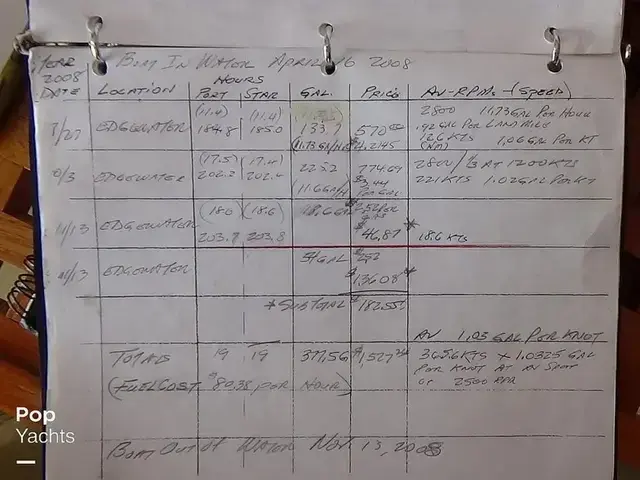 YEAR 2008 BOAT IN WATER APRIL 16 2008
HOURS
DATE LOCATION PORT STAR GAL. PRICE AV-RPMs-(SPEED)
(11.4) (11.4) 2800 11.73 GAL PER HOUR
7/27 EDGEWATER 184.8 185.0 133.7 570 .92 GAL PER LAND MILE
126 KTS 1,06 GAL PER KT
(NM)
(17.5) (17.4) 2800 / 1/3 AT 1200 KTS
9/3 EDGEWATER 202.2 202.4 225.2 774.69 221 KTS 1.02 GAL PER KT
11.6 GAL/H PER GAL
(18.0) (18.6) 18.6 GAL
11/13 EDGEWATER 203.7 203.8 $46,87* 18.6 KTS
11/13 EDGEWATER 54 GAL
$136.08*
*SUBTOTAL $182.55
AV 1.03 GAL PER KNOT
TOTALS 19 19 377,56 $1,527 365.6 KTS x 1.0325 GAL
(FUEL COST $80,38 PER HOUR) PER KNOT AT AV SPEED
OF 2500 RPM
BOAT OUT OF WATER NOV. 13, 2008
Pop
Yachts